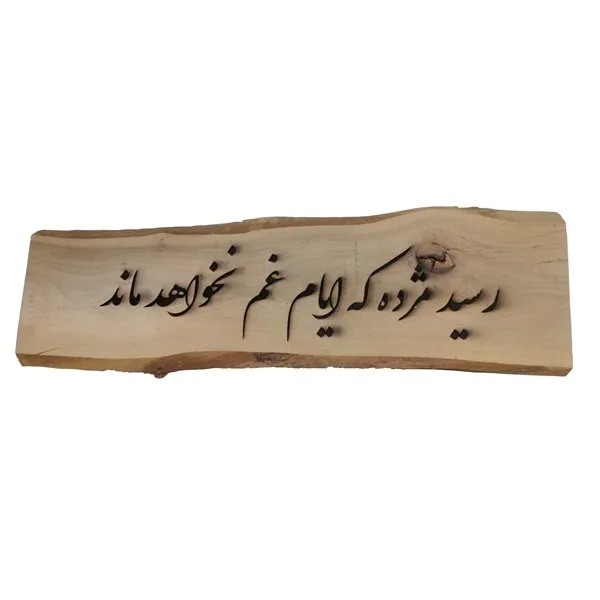 رسید مژده که ایام غم نخواهد ماند